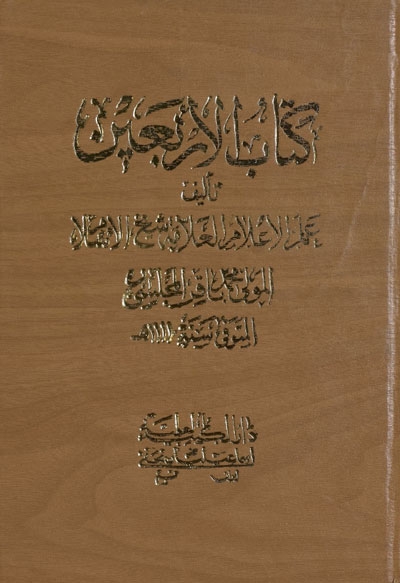 كتاب الأربعين
تأليف
علم الأعلام العلامة شيخ الإسلام
المولى محمد باقر المجلسي
المتوفى سنة ١١١١هـ
دار الكتب العلمية
اسماعيليان نجفي
ايران قم